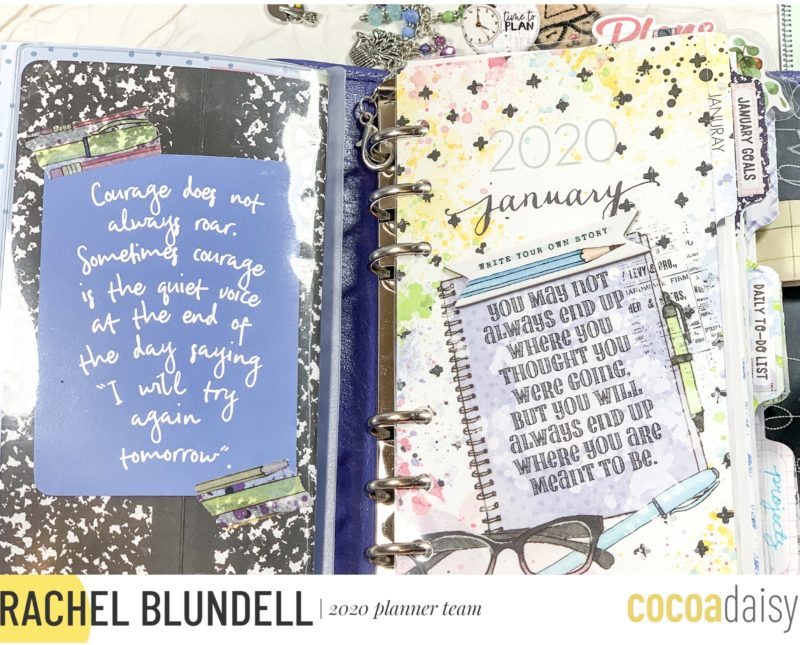 time to
PLAN
Plans
Courage does not
always roar.
Sometimes courage
is the quiet voice
at the end of
the day saying
"I will try
again
tomorrow".
2020
january
JANURAY
JANUARY GOALS
WRITE YOUR OWN STORY
YOU MAY NOT
ALWAYS END UP
WHERE YOU
THOUGHT YOU
WERE GOING,
BUT YOU WILL
ALWAYS END UP
WHERE YOU ARE
MEANT TO BE.
DAILY TO-DO LIST
projects
RACHEL BLUNDELL | 2020 planner team
cocoadaisy